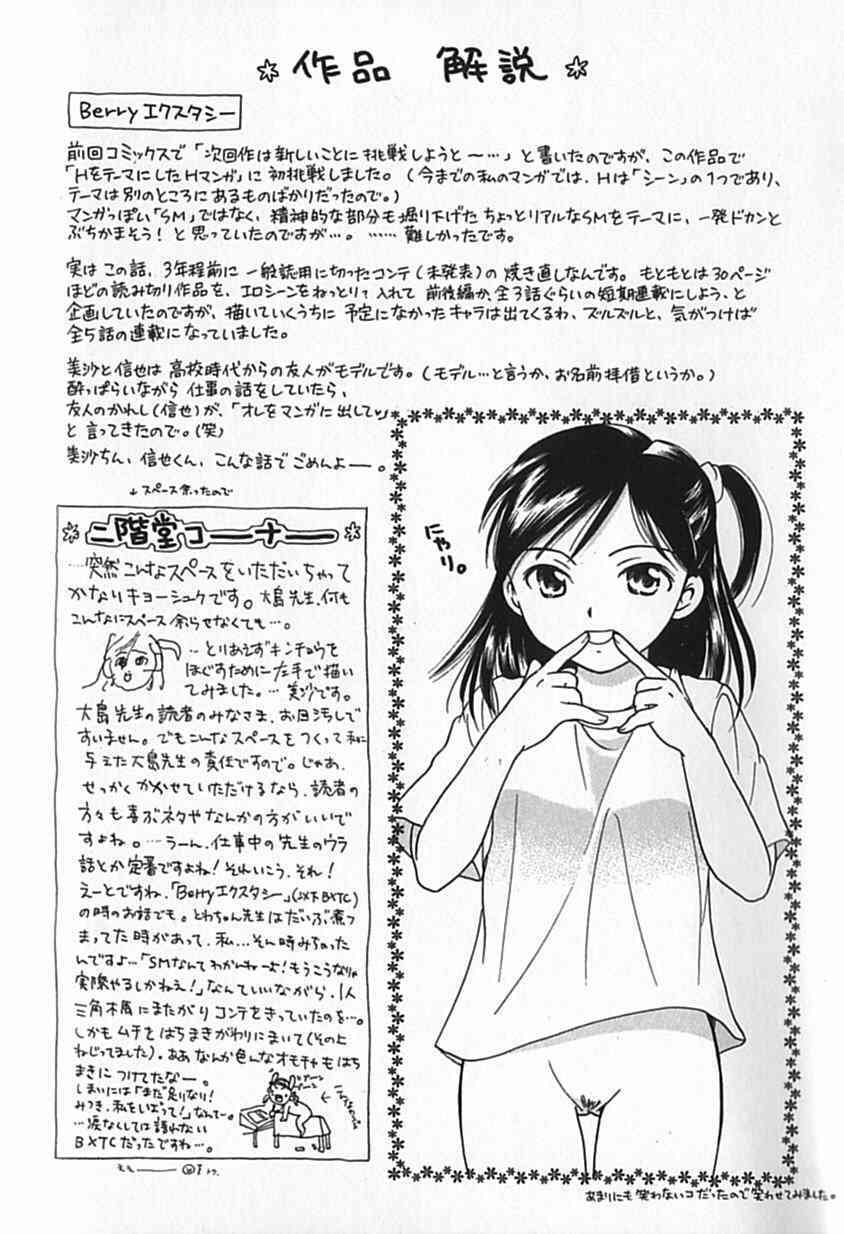 作品 解説
Berryエクスタシー
前回コミックスで「次回作は新しいことに挑戦しようと〜…」と書いたのですが、この作品で
「HをテーマにしたHマンガ」に初挑戦しました。(今までの私のマンガでは、Hは「シーン」の1つであり、
テーマは別のところにあるものばかりだったので。)
マンガっぽい「SM」ではなく、精神的な部分も掘り下げたちょっとリアルなSMをテーマに、一発ドカンと
ぶちかまそう!と思っていたのですが…。……難しかったです。
実はこの話、3年程前に一般誌用に切ったコンテ(未発表)の焼き直しなんです。もともとは30ページ
ほどの読み切り作品を、エロシーンをねっとり入れて前後編か、全3話ぐらいの短期連載にしよう、と
企画していたのですが、描いていくうちに予定になかったキャラは出てくるわ、ズルズルと、気がつけば
全5話の連載になっていました。
美沙と信也は高校時代からの友人がモデルです。(モデル…と言うか、お名前拝借というか。)
酔っぱらいながら仕事の話をしていたら、
友人のかれし(信也)が、「オレをマンガに出して」
と言ってきたので。(笑)
美沙ちん、信也くん、こんな話でごめんよー。
↓スペース余ったので
二階堂コーナー
…突然こんなスペースをいただいちゃって
かなりキョーシュクです。大島先生、何も
こんなにスペース余らせなくても…。
…とりあえずキンチョウを
ほぐすために左手で描い
てみました。…美沙です。
大島先生の読者のみなさま、お目汚しで
すいません。でもこんなスペースをつくって私に
与えた大島先生の責任ですので。じゃあ、
せっかくかかせていただけるなら、読者の
方々も喜ぶネタやなんかの方がいいで
すよね。…うーん、仕事中の先生のウラ
話とか定番ですよね!それいこう、それ!
えーとですね、「Berryエクスタシー」(以下BXTC)
の時のお話でも。とわちゃん先生はだいぶ煮つ
まってた時があって、私…そん時みちゃった
んですよ…「SMなんてわかんねーよ!もうこうなりゃ
実際やるしかねえ!」なんていいながら、1人
三角木馬にまたがりコンテをきっていたのを…。
しかもムチをはちまきがわりにまいて(その上
ねじってました)。ああなんか色んなオモチャもはち
まきにつけてたなー。
しまいには「まだ足りない!
みつき、私をしばって!」なんて…。
…涙なくしては語れない
BXTCだったですね…。
にやり。
あまりにも笑わないコだったので笑わせてみました。